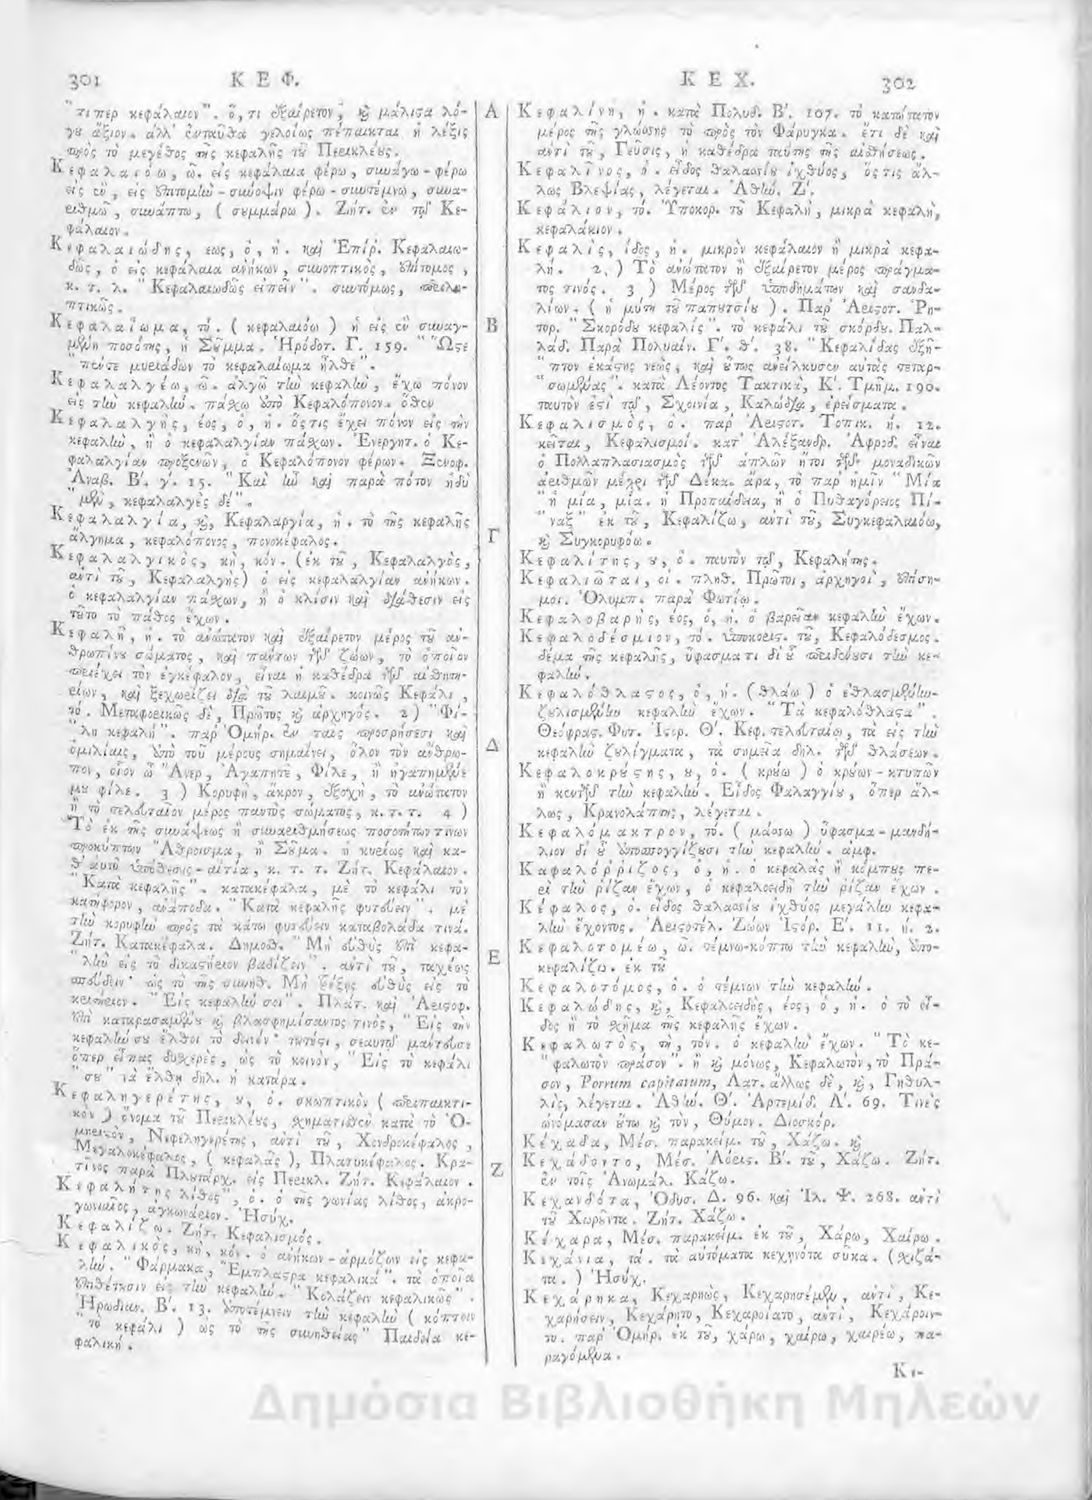 301 ΚΕΦ.
"τιπερ κεφάλαιον". ὅ,τι ἐξαίρετον, καὶ μάλιστα λό-
γου ἄξιον. ἀλλ' ἐνταῦθα γελοίως πέπαικται ἡ λέξις
πρὸς τὸ μέγεθος τῆς κεφαλῆς τοῦ Περικλέους.
Κεφαλαιόω, ῶ. εἰς κεφάλαια φέρω, συνάγω - φέρω
εἰς ἓν, εἰς ἐπιτομὴν - σύνοψιν φέρω - συντέμνω, συνα-
ριθμῶ, συνάπτω, ( συμμάρω ). Ζήτ. ἐν τῷ Κε-
φάλαιον.
Κεφαλαιώδης, εως, ὁ, ἡ. καὶ Ἐπίρ. Κεφαλαιω-
δῶς, ὁ εἰς κεφάλαια ἀνήκων, συνοπτικὸς, ἐπίτομος,
κ. τ. λ. "Κεφαλαιωδῶς εἰπεῖν". συντόμως, περιλη-
πτικῶς.
Κεφαλαίωμα, τό. ( κεφαλαιόω ) ἡ εἰς ἓν συναγ-
μένη ποσότης, ἡ Σοῦμμα. Ἡρόδοτ. Γ. 159. "Ὥστε
"πέντε μυριάδων τὸ κεφαλαίωμα ἦλθε".
Κεφαλαλγέω, ῶ. ἀλγῶ τὴν κεφαλὴν, ἔχω πόνον
εἰς τὴν κεφαλὴν. πάσχω ὑπὸ Κεφαλόπονον. ὅθεν
Κεφαλαλγής, έος, ὁ, ἡ. ὅςτις ἔχει πόνον εἰς τὴν
κεφαλὴν, ἢ ὁ κεφαλαλγίαν πάσχων. Ἐνεργητ. ὁ Κε-
φαλαλγίαν προξενῶν, ὁ Κεφαλόπονον φέρων. Ξενοφ.
Ἀναβ. Β'. γ'. 15. "Καὶ ἦν καὶ παρὰ πότον ἡδὺ
"μὲν, κεφαλαλγὲς δέ".
Κεφαλαλγία, καὶ, Κεφαλαργία, ἡ. τὸ τῆς κεφαλῆς
ἄλγημα, κεφαλόπονος, πονοκέφαλος.
Κεφαλαλγικὸς, κὴ, κόν. (ἐκ τοῦ, Κεφαλαλγὸς,
ἀντὶ τοῦ, Κεφαλαλγής) ὁ εἰς κεφαλαλγίαν ἀνήκων.
ὁ κεφαλαλγίαν πάσχων, ἢ ὁ κλίσιν καὶ διάθεσιν εἰς
τοῦτο τὸ πάθος ἔχων.
Κεφαλὴ, ἡ. τὸ ἀνώτατον καὶ ἐξαίρετον μέρος τοῦ ἀν-
θρωπίνου σώματος, καὶ πάντων τῶν ζώων, τὸ ὁποῖον
περιέχει τὸν ἐγκέφαλον, εἶναι ἡ καθέδρα τῶν αἰσθητη-
ρίων, καὶ ξεχωρίζει διὰ τοῦ λαιμοῦ. κοινῶς Κεφάλι,
τό. Μεταφορικῶς δὲ, Πρῶτος καὶ ἀρχηγός. 2) "Φί-
"λη κεφαλή". παρ' Ὁμήρ. ἐν ταῖς προσρήσεσι καὶ
ὁμιλίαις, ὑπὸ τοῦ μέρους σημαίνει, ὅλον τὸν ἄνθρω-
πον, οἷον ὦ Ἄνερ, Ἀγαπητὲ, Φίλε, ἢ ἠγαπημένε
μου φίλε. 3 ) Κορυφὴ, ἄκρον, ἐξοχὴ, τὸ ἀνώτατον
ἢ τὸ τελευταῖον μέρος παντὸς σώματος, κ. τ. τ. 4 )
Τὸ ἐκ τῆς συνάψεως ἢ συναριθμήσεως ποσοτήτων τινων
προκύπτον Ἄθροισμα, ἡ Σοῦμα. ἢ κυρίως καὶ κα-
θ' αὑτὸ ὑπόθεσις - αἰτία, κ. τ. τ. Ζήτ. Κεφάλαιον.
"Κατὰ κεφαλῆς". κατακέφαλα, μὲ τὸ κεφάλι τὸν
κατήφορον, ἀνάποδα. "Κατὰ κεφαλῆς φυτεύειν". μὲ
τὴν κορυφὴν πρὸς τὰ κάτω φυτεύειν καταβολάδα τινά.
Ζήτ. Κατακέφαλα. Δημοσθ. "Μὴ εὐθὺς ἐπὶ κεφα-
"λὴν εἰς τὸ δικαστήριον βαδίζειν". ἀντὶ τοῦ, ταχέως
σπεύδειν· ὡς τὸ τῆς συνηθ. Μὴ τρέξῃς εὐθὺς εἰς τὸ
κριτήριον. "Εἰς κεφαλὴν σοι". Πλάτ. καὶ Ἀριστοφ.
ἐπὶ καταρασαμένου καὶ βλασφημίσαντος τινὸς, "Εἰς τὴν
κεφαλὴν σου ἔλθοι τὸ δεινόν· τουτέστι, σεαυτῷ μαντεῦσε
ὅπερ εἶπας δυσχερὲς, ὡς τὸ κοινὸν, "Εἰς τὸ κεφάλι
"σου" νὰ ἔλθῃ δηλ. ἡ κατάρα.
Κεφαληγερέτης, ου, ὁ. σκωπτικὸν ( περιπαικτι-
κὸν ) ὄνομα τοῦ Περικλέους, σχηματισθὲν κατὰ τὸ Ὁ-
μηρικὸν, Νεφεληγερέτης, ἀντὶ τοῦ, Χονδροκέφαλος,
Μεγαλοκέφαλος, ( κεφαλᾶς ), Πλατυκέφαλος. Κρα-
τῖνος παρὰ Πλουτάρχ. εἰς Περικλ. Ζήτ. Κεφάλαιον.
Κεφαλήτης λίθος, ὁ. ὁ τῆς γωνίας λίθος, ἀκρο-
γωνιαῖος, ἀγκωνάριον. Ἡσύχ.
Κεφαλίζω. Ζήτ. Κεφαλισμός.
Κεφαλικὸς, κὴ, κόν. ὁ ἀνήκων - ἁρμόζων εἰς κεφα-
λήν. "Φάρμακα, "Ἔμπλαστρα κεφαλικά". τὰ ὁποῖα
ἐπιθέτουσιν εἰς τὴν κεφαλήν. "Κολάζειν κεφαλικῶς".
Ἡρωδιαν. Β'. 13. ἀποτέμνειν τὴν κεφαλὴν ( κόπτειν
τὸ κεφάλι ) ὡς τὸ τῆς συνηθείας "Παιδεία κε-
φαλική.
Α
Β
Γ
Δ
Ε
Ζ
ΚΕΧ. 302
Κεφαλίνη, ἡ. κατὰ Πολυδ. Β'. 107. τὸ κατώτατον
μέρος τῆς γλώσσης τὸ πρὸς τὸν Φάρυγκα. ἔτι δὲ καὶ
ἀντὶ τοῦ, Γεῦσις, ἡ καθέδρα ταύτης τῆς αἰσθήσεως.
Κεφαλῖνος, ὁ. εἶδος θαλασσίου ἰχθύος, ὅς τις ἄλ-
λως Βλεψίας, λέγεται. Ἀθήν. Ζ'.
Κεφάλιον, τό. Ὑποκορ. τοῦ Κεφαλὴ, μικρὰ κεφαλὴ,
κεφαλάκιον.
Κεφαλὶς, ίδος, ἡ. μικρὸν κεφάλαιον ἢ μικρὰ κεφα-
λή. 2, ) Τὸ ἀνώτατον ἢ ἐξαίρετον μέρος πράγμα-
τος τινός. 3 ) Μέρος τῶν ὑποδημάτων καὶ σανδα-
λίων. ( ἡ μύτη τοῦ παπουτσίου ). Παρ' Ἀριστοτ. Ῥη-
τορ. "Σκορόδου κεφαλίς". τὸ κεφάλι τοῦ σκόρδου. Παλ-
λάδ. Παρὰ Πολυαίν. Γ'. θ'. 38. "Κεφαλίδας ἐξῆ-
"πτον ἑκάστης νεὼς, καὶ οὕτως ἀνείλκυσεν αὐτὰς τεταρ-
"σωμένας". κατὰ Λέοντος Τακτικὰ, Κ'. Τμῆμ. 190.
ταυτόν ἐστι τῷ, Σχοινία, Καλώδια, ἐρείσματα.
Κεφαλισμὸς, ὁ. παρ' Ἀριστοτ. Τοπικ. ή. 12.
κεῖται, Κεφαλισμοί. κατ' Ἀλέξανδρ. Ἀφροδ. εἶναι
ὁ Πολλαπλασιασμὸς τῶν ἁπλῶν ἤτοι τῶν μοναδικῶν
ἀριθμῶν μέχρι τῶν Δέκα. ἄρα, τὸ παρ' ἡμῖν "Μία
"ἡ μία, μία. ἡ Προπαίδεια, ἢ ὁ Πυθαγόρειος Πί-
"ναξ" ἐκ τοῦ, Κεφαλίζω, ἀντὶ τοῦ, Συγκεφαλαιόω,
καὶ Συγκορυφόω.
Κεφαλίτης, ου, ὁ. ταυτὸν τῷ, Κεφαλήτης.
Κεφαλιῶται, οἱ. πληθ. Πρῶτοι, ἀρχηγοὶ, ἐπίση-
μοι. Ὀλυμπ. παρὰ Φωτίῳ.
Κεφαλοβαρὴς, έος, ὁ, ἡ. ὁ βαρεῖαν κεφαλὴν ἔχων.
Κεφαλοδέσμιον, τό. ὑποκορις. τοῦ, Κεφαλόδεσμος.
δέμα τῆς κεφαλῆς, ὕφασμα τι δι' οὗ περιδένουσι τὴν κε-
φαλήν.
Κεφαλόθλαστος, ὁ, ἡ. (θλάω ) ὁ ἐθλασμένην-
ζουλισμένην κεφαλὴν ἔχων. "Τὰ κεφαλόθλαστα".
Θεόφραστ. Φυτ. Ἱστορ. Θ'. Κεφ. τελευταίῳ, τὰ εἰς τὴν
κεφαλὴν ζουλίγματα, τὰ σημεῖα δηλ. τῶν θλάσεων.
Κεφαλοκρούστης, ου, ὁ. ( κρούω ) ὁ κρούων - κτυπῶν
ἢ κεντῶν τὴν κεφαλήν. Εἶδος Φαλαγγίου, ὅπερ ἄλ-
λως, Κρανολάπτης, λέγεται.
Κεφαλόμακτρον, τό. ( μάσσω ) ὕφασμα - μανδή-
λιον δι' οὗ ἀποσπογγίζουσι τὴν κεφαλήν. ἀμφ.
Καφαλόρριζος, ὁ, ἡ. ὁ κεφαλὰς ἢ κόμπους πε-
ρὶ τὴν ῥίζαν ἔχων, ὁ κεφαλοειδῆ τὴν ῥίζαν ἔχων.
Κέφαλος, ὁ. εἶδος θαλασσίου ἰχθύος μεγάλην κεφα-
λὴν ἔχοντος. Ἀριστοτέλ. Ζώων Ἱστόρ. Ε'. 11. ή. 2.
Κεφαλοτομέω, ῶ. τέμνω-κόπτω τὴν κεφαλὴν, ἀπο-
κεφαλίζω. ἐκ τοῦ
Κεφαλοτόμος, ὁ. ὁ τέμνων τὴν κεφαλήν.
Κεφαλώδης, καὶ, Κεφαλοειδὴς, έος, ὁ, ἡ. ὁ τὸ εἶ-
δος ἢ τὸ σχῆμα τῆς κεφαλῆς ἔχων.
Κεφαλωτὸς, τὴ, τόν. ὁ κεφαλὴν ἔχων. "Τὸ κε-
"φαλωτὸν πράσον". ἢ καὶ μόνως, Κεφαλωτὸν, τὸ Πρά-
σον, Porrum capitatum, Λατ. ἄλλως δὲ, καὶ, Γηθυλ-
λὶς, λέγεται. Ἀθήν. Θ'. Ἀρτεμίδ. Α'. 69. Τινὲς
ὠνόμασαν οὕτω καὶ τὸν, Θύμον. Διοσκόρ.
Κέχαδα, Μέσ. παρακείμ. τοῦ, Χάζω. καὶ
Κεχάδοντο, Μέσ. Ἀόρις. Β'. τοῦ, Χάζω. Ζήτ.
ἐν τοῖς Ἀνωμάλ. Κάζω.
Κεχανδότα, Ὀδυσ. Δ. 96. καὶ Ἰλ. Ψ. 268. ἀντὶ
τοῦ Χωροῦντα. Ζήτ. Χάζω.
Κέχαρα, Μέσ. παρακείμ. ἐκ τοῦ, Χάρω, Χαίρω.
Κεχάνια, τά. τὰ αὐτόματα κεχηνότα σῦκα. (χιζά-
τα. ) Ἡσύχ.
Κεχάρηκα, Κεχαρηὼς, Κεχαρησέμεν, ἀντὶ, Κε-
χαρήσειν, Κεχάρητο, Κεχαροίατο, ἀντὶ, Κεχάροιν-
το. παρ' Ὁμήρ. ἐκ τοῦ, χάρω, χαίρω, χαιρέω, πα-
ραγόμενα.
Κε-
Δημόσια Βιβλιοθήκη Μηλεών